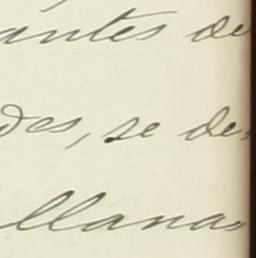 antes de
des, se de
llana